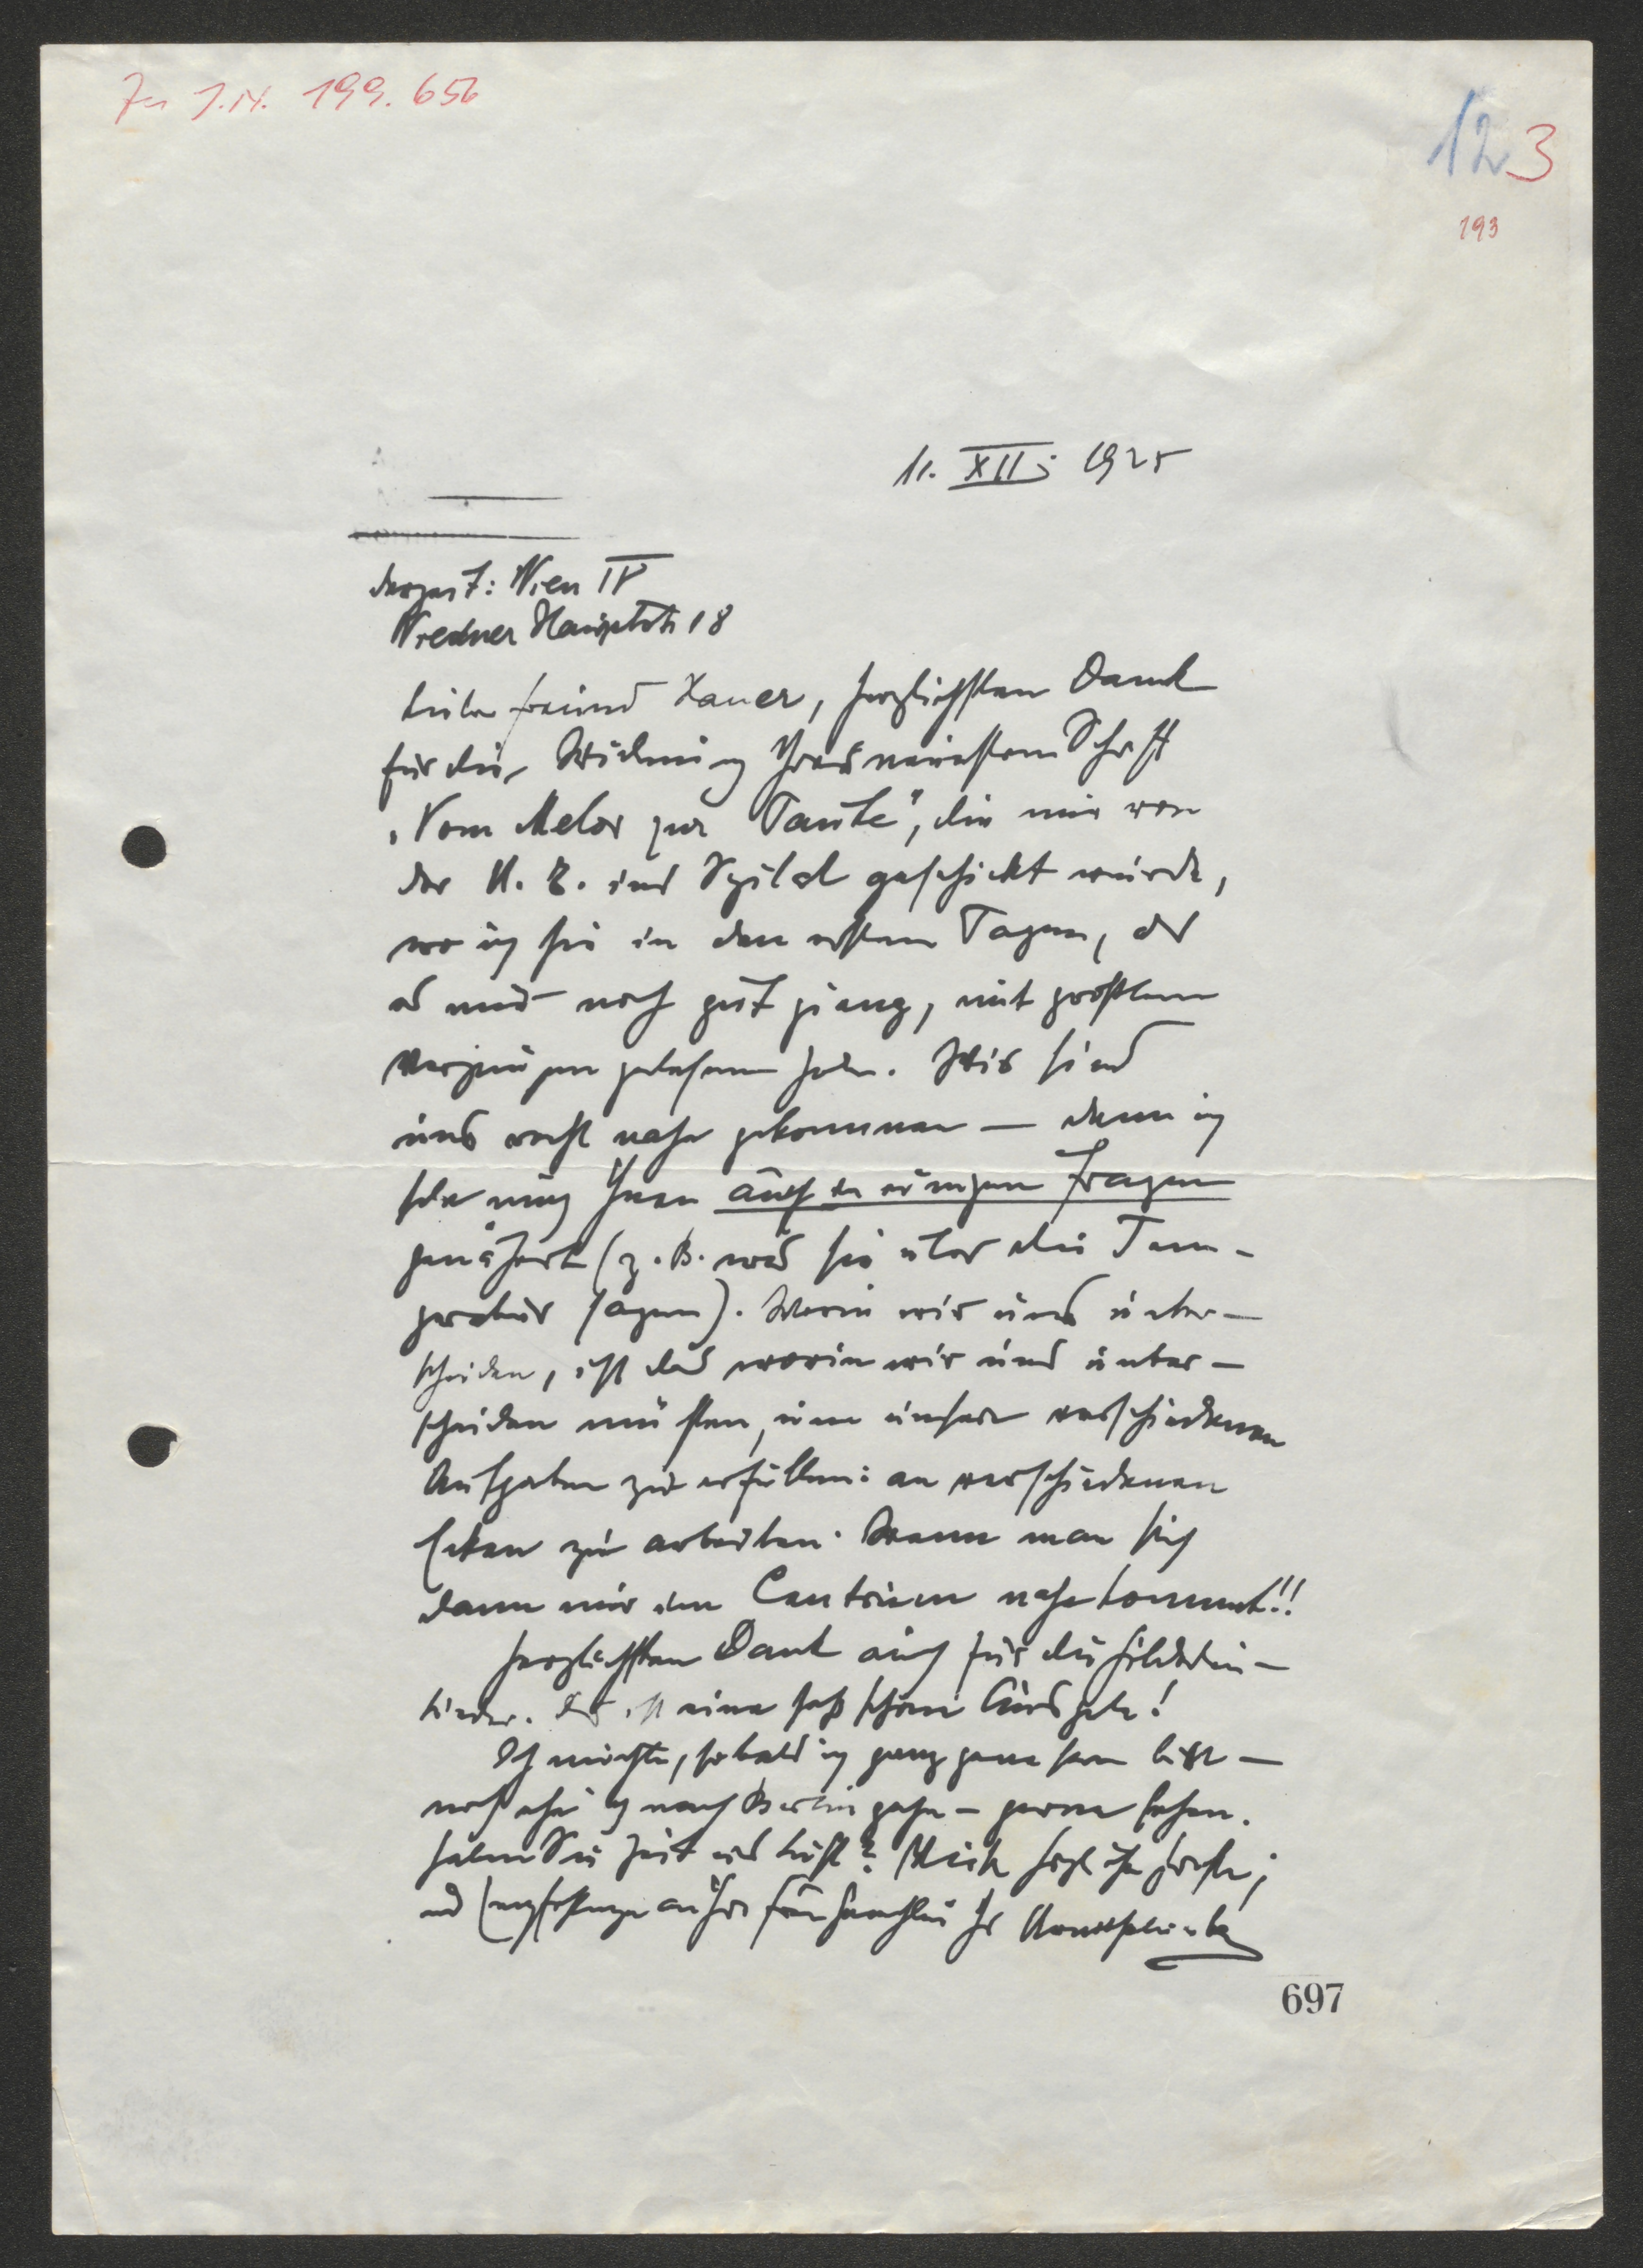 Zu I.N. 199.656
123
193
11. XII. 1925
derzeit: Wien IV
Wiedner Hauptstr 18
Lieber Freund Hauer, herzlichsten Dank
für die Widmung Ihrer neuesten Schrift
„Vom Melos zur Pauke", die mir von
der U. E. ins Spital geschickt wurde,
wo ich sie in den ersten Tagen, da
es mir noch gut gieng, mit größtem
Vergnügen gelesen habe. Wir sind
uns recht nahe gekommen — denn ich
habe mich Ihnen auch in einigen Fragen
genähert (z. B. was Sie über die Tem-
peratur sagen). Worin wir uns unter-
scheiden, ist das worin wir uns unter-
scheiden müssen, um unsere verschiedenen
Aufgaben zu erfüllen: an verschiedenen
Ecken zu arbeiten. Wenn man sich
dann nur im Centrum nahekommt!!
Herzlichsten Dank auch für die Hölderlin-
lieder. Das ist eine sehr schöne Ausgabe!
Ich möchte, sobald ich ganz genesen bin —
noch ehe ich nach Berlin gehe — gerne sehen.
Haben Sie Zeit und Lust? Viele herzliche Grüße;
und Empfehlungen an Ihre Frau Gemahlin Ihr Arnold Schönberg
697